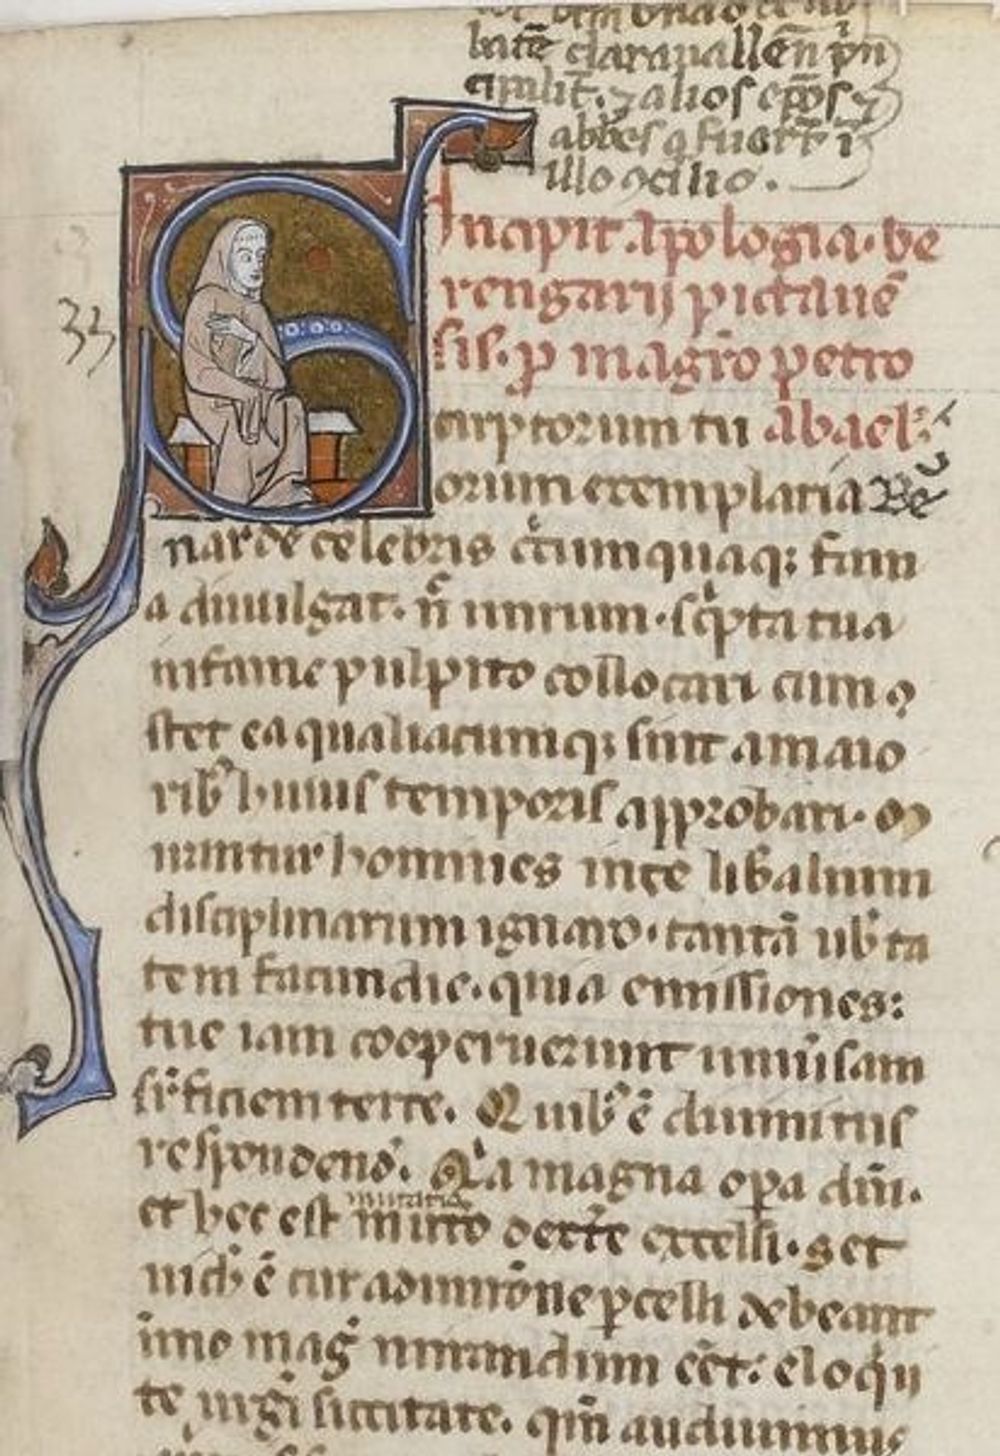 batē clarauallēn̄ p̄n
cipalit̄. ⁊ alios ep̄os ⁊
abb̄es q̄ fuer̄t ī
illo ꝯcilio.
Incipit Apologia. be
rengarij pictauē
sis. ꝓ magr̄o petro
abael.
Scriptorum tu
orum exemplaria Be
narde celebris
a diuulgat. n̄ mirum. sc̄pta tua
infame pulpito collocari cum ꝯ
stet ea qualiacumq; sint a maio
rib᷒ huius temporis approbari. ꝯ
mirantur homines in te lib̄alium
disciplinarum ignaro. tantā ub̄ta
tem facundie. quia emissiones:
tue iam cooperuerunt uniūsam
sr̄ficiem terre. Quib᷒ ē diuinitus
respondend᷒. Q̄a magna op̄a dn̄i.
et hec est mutatio
mutō dextr̄e excelsi. Set
nich̄ ē cur admirōne ꝑcelli debeant
imo mag᷒ mirandum eēt. eloqii
te urgi siccitate. qm̄ audiuimus
33